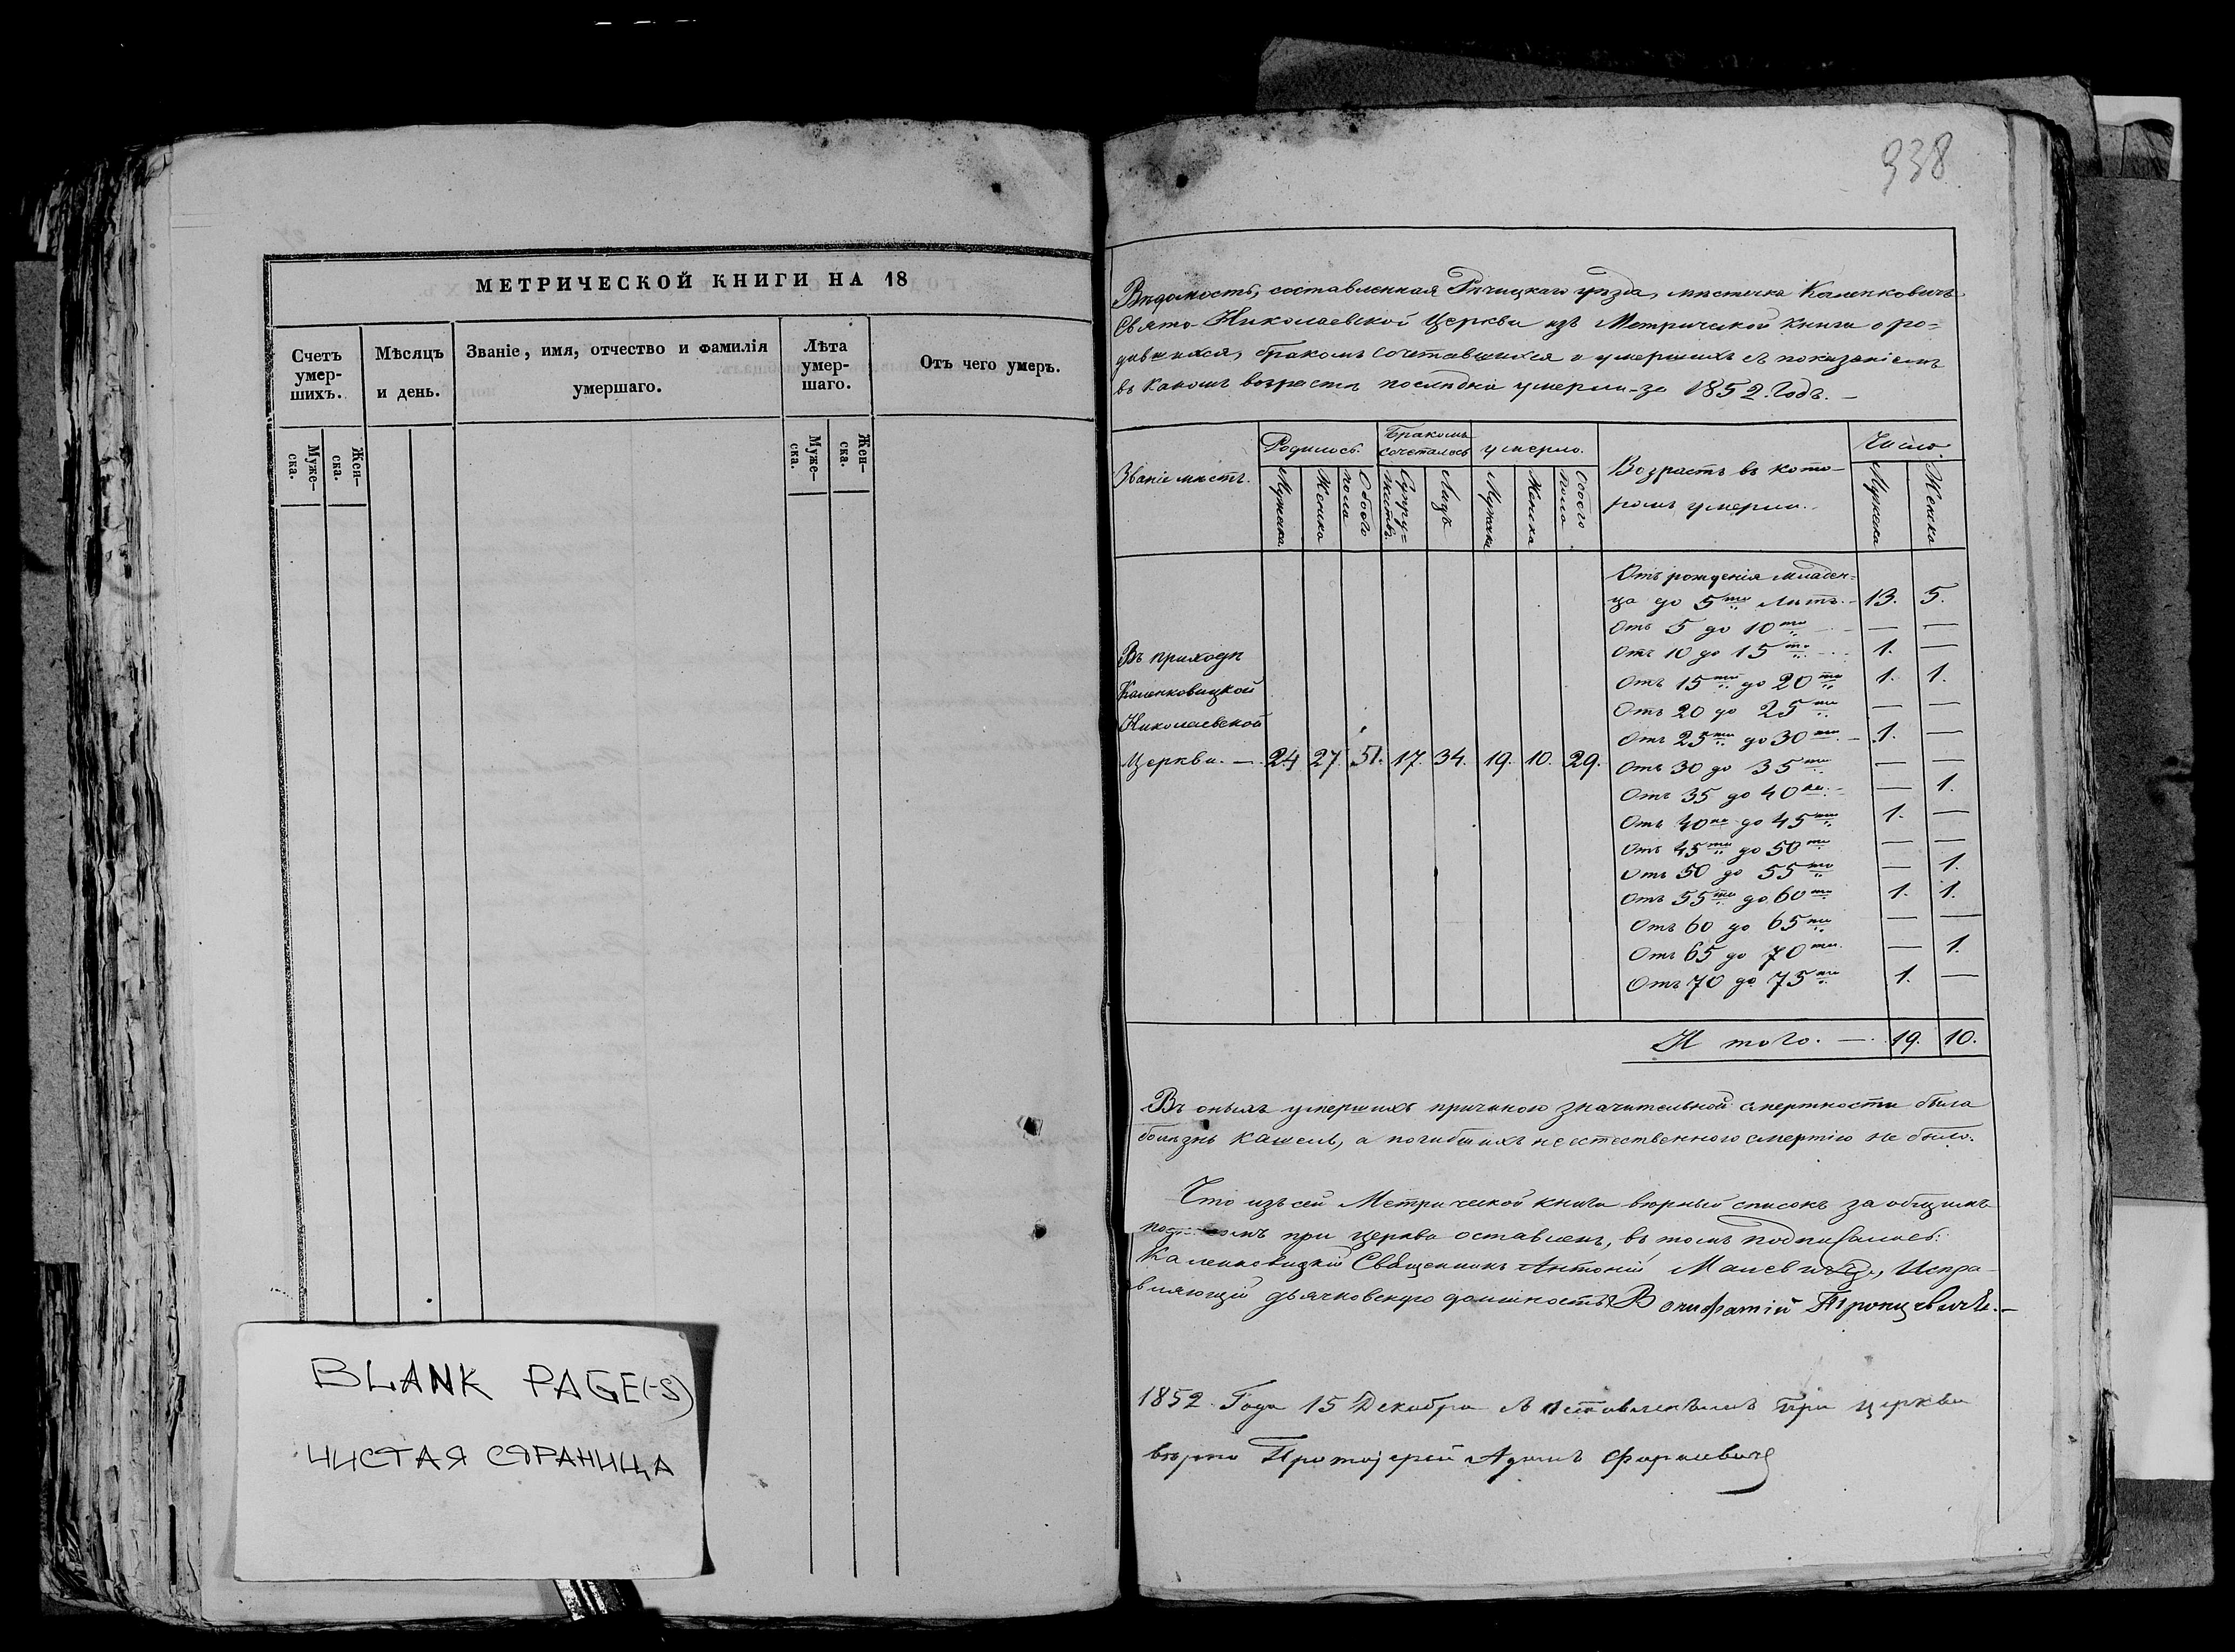 МЕТРИЧЕСКОЙ КНИГИ НА 18
Счетъ умер- шихъ.
Мѣсяцъ и день.
Званіе, имя, отчество и фамилія умершаго.
Лѣта умер- шаго.
Отъ чего умеръ.
Муже- ска.
Жен- ска.
Муже- ска.
Жен- ска.
BLANK PAGE(-S)
ЧИСТАЯ СТРАНИЦА
938
Вѣдомость, составленная Рѣчицкаго уѣзда, мѣстечка Каленковичъ
Свято-Николаевской Церкви изъ Метрической книги о ро=
дившихся, бракомъ сочетавшихся и умершихъ съ показаніемъ
въ какомъ возрастѣ послѣдніе умерли за 1852. Годъ. —
Званіе мѣстъ.
Родилось.
Бракомъ сочеталось
умерло.
Возрастъ въ кото-
ромъ умерли.
Число.
Мужеска
Женска
Обоего пола
Супру= жествъ.
Лицъ
Мужеска
Женска
Обоего пола
Мужеска
Женска
Отъ рожденія младен=
ца до 5ти лѣтъ. – 13. 5.
Отъ 5 до 10ти — —
Отъ 10 до 15ти 1. —
Отъ 15ти до 20ти 1. 1.
Отъ 20 до 25ти — —
Отъ 25ти до 30ти – 1. —
Отъ 30 до 35ти — —
Отъ 35 до 40ка — 1.
Отъ 40ка до 45ти 1. —
Отъ 45ти до 50ти — —
Отъ 50 до 55ти — 1.
Отъ 55ти до 60ти 1. 1.
Отъ 60 до 65ти — —
Отъ 65 до 70ти — 1.
Отъ 70 до 75ти 1. —
Въ приходѣ
Каленковицкой
Николаевской
Церкви. — 24 27 51. 17. 34. 19. 10. 29.
И того. — 19. 10.
Въ оныхъ умершихъ причиною значительной смертности была
болѣзнь кашель, а погибшихъ неестественною смертію не было.
Что изъ сей Метрической книги вѣрный списокъ за общимъ
при церкви оставленъ, въ томъ подписались:
Каленковицкій Священникъ Антоній Малевичъ, Испра-
вляющій дьячковскую должность Вонифатій Троицевичъ. —
1852 Года 15 Декабря съ оставленнымъ при церкви
вѣрно Протоіерей Адамъ